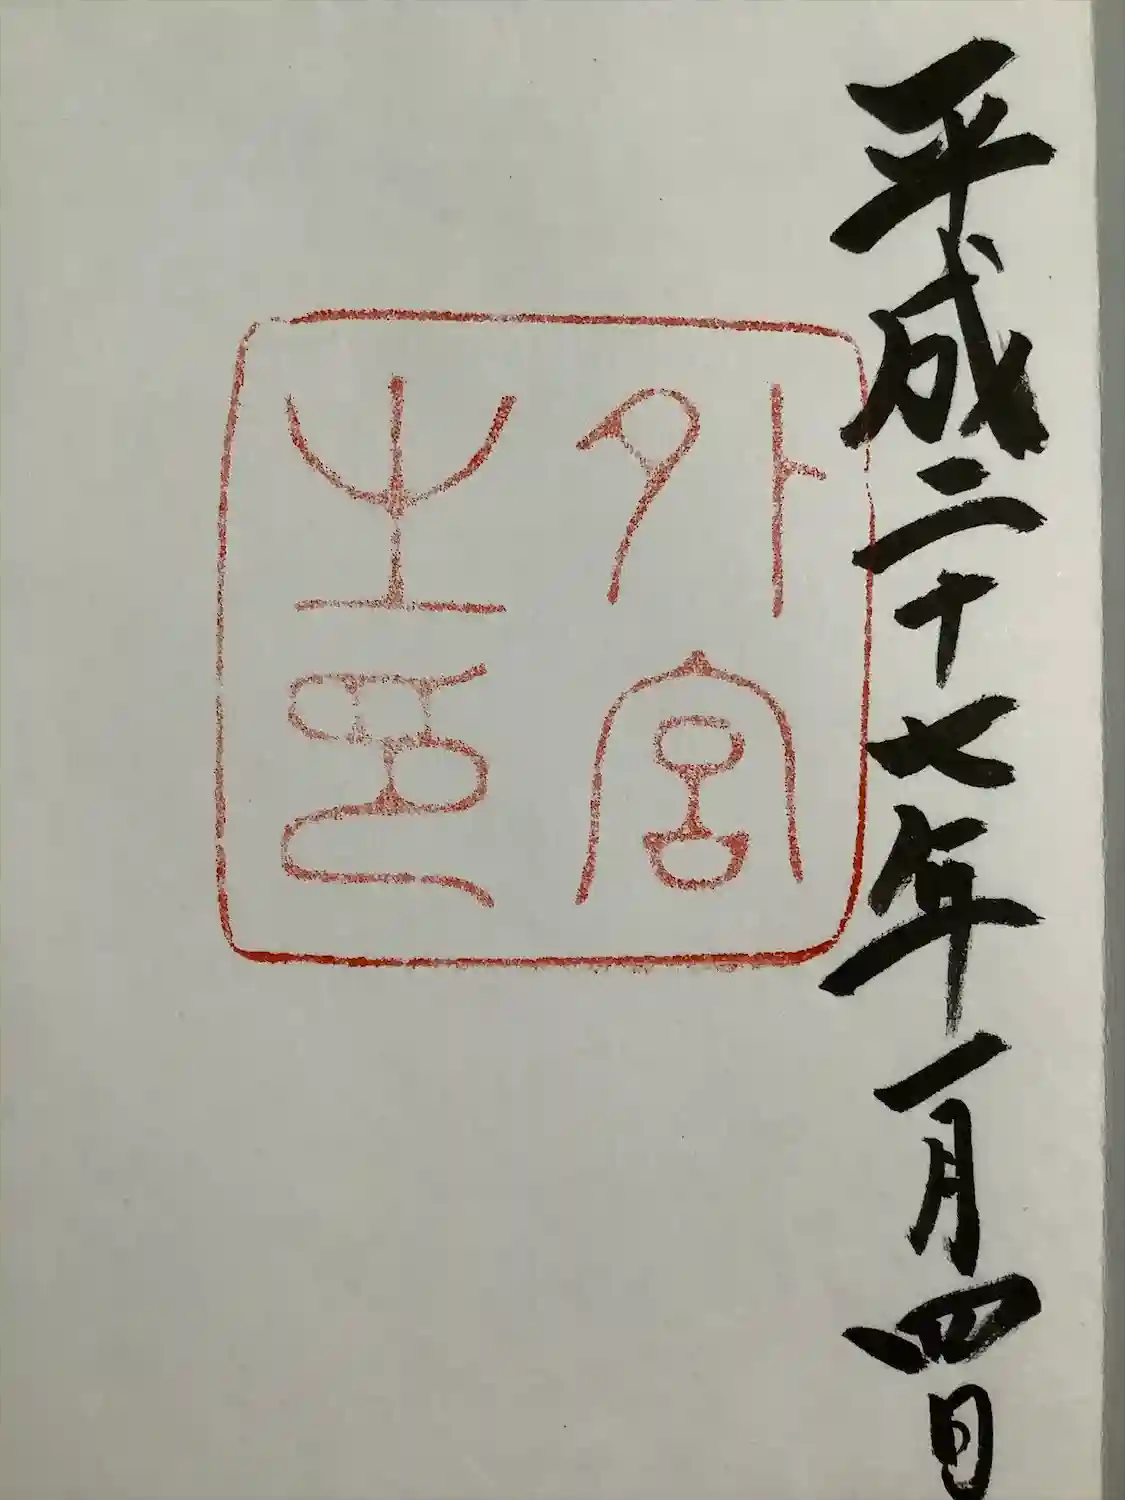 平成二十七年一月四日
外宮
之印